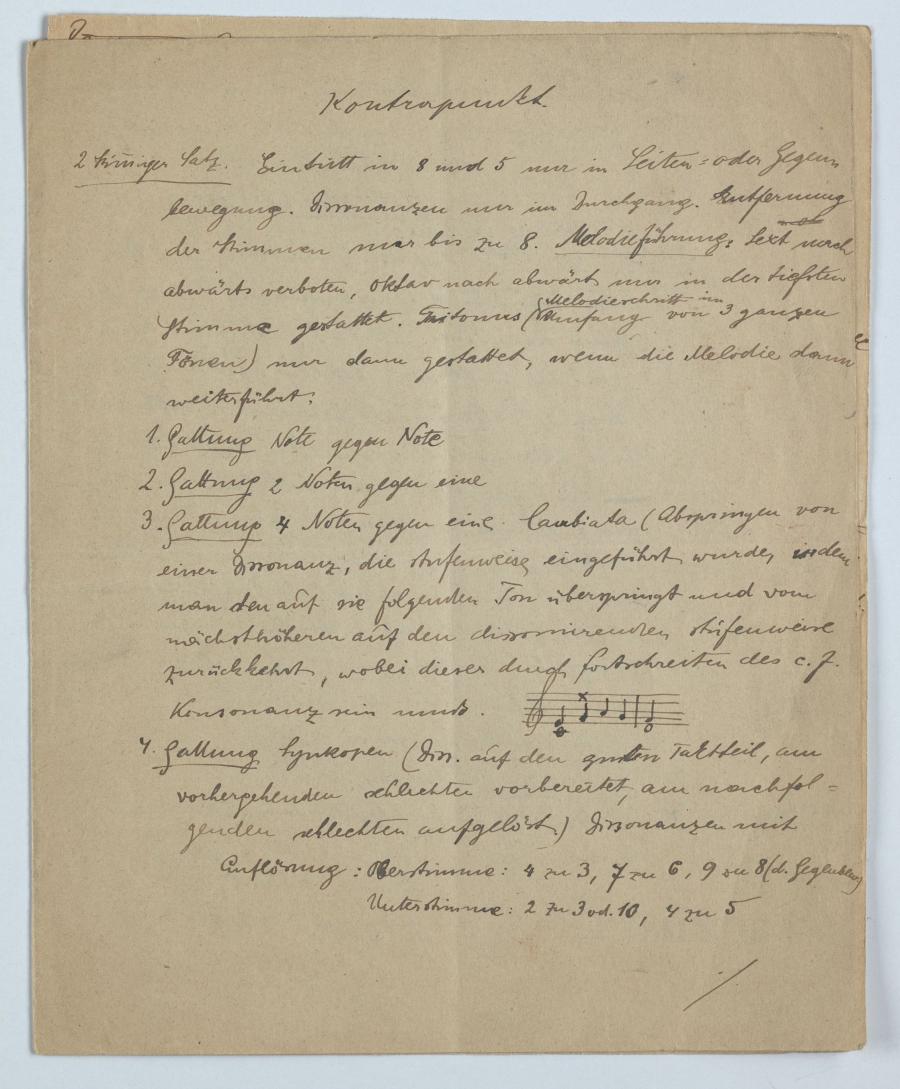 Kontrapunkt.
2 stimmiger Satz. Eintritt in 8 und 5 nur in Seiten= oder Gegen
bewegung. Dissonanzen nur im Durchgang. Entfernung
der Stimmen nur bis zu 8. Melodieführung: Sext nach
abwärts verboten, Oktav nach abwärts nur in der tiefsten
Melodieschritt im
Stimme gestattet. Tritonus (Umfang von 3 ganzen
Tönen) nur dann gestattet, wenn die Melodie dann
weiterführt.
1. Gattung Note gegen Note
2. Gattung 2 Noten gegen eine
3. Gattung 4 Noten gegen eine. Cambiata (Abspringen von
einer Dissonanz, die stufenweise eingeführt wurde, indem
man den auf sie folgenden Ton überspringt und vom
nächsthöheren auf den dissonirenden stufenweise
zurückkehrt, wobei dieser durch Fortschreiten des c. f.
Konsonanz sein muss.
4. Gattung Synkopen (Diss. auf den guten Taktteil, am
vorhergehenden schlechten vorbereitet, am nachfol=
genden schlechten aufgelöst) Dissonanzen mit
Auflösung: Oberstimme: 4 zu 3, 7 zu 6, 9 zu 8
Unterstimme: 2 zu 3 od. 10, 4 zu 5